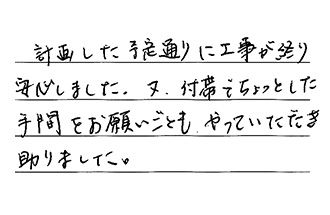 計画した予定通りに工事が終り
安心しました。又、付帯でちょっとした
手間をお願いごとも、やっていただき
助りました。